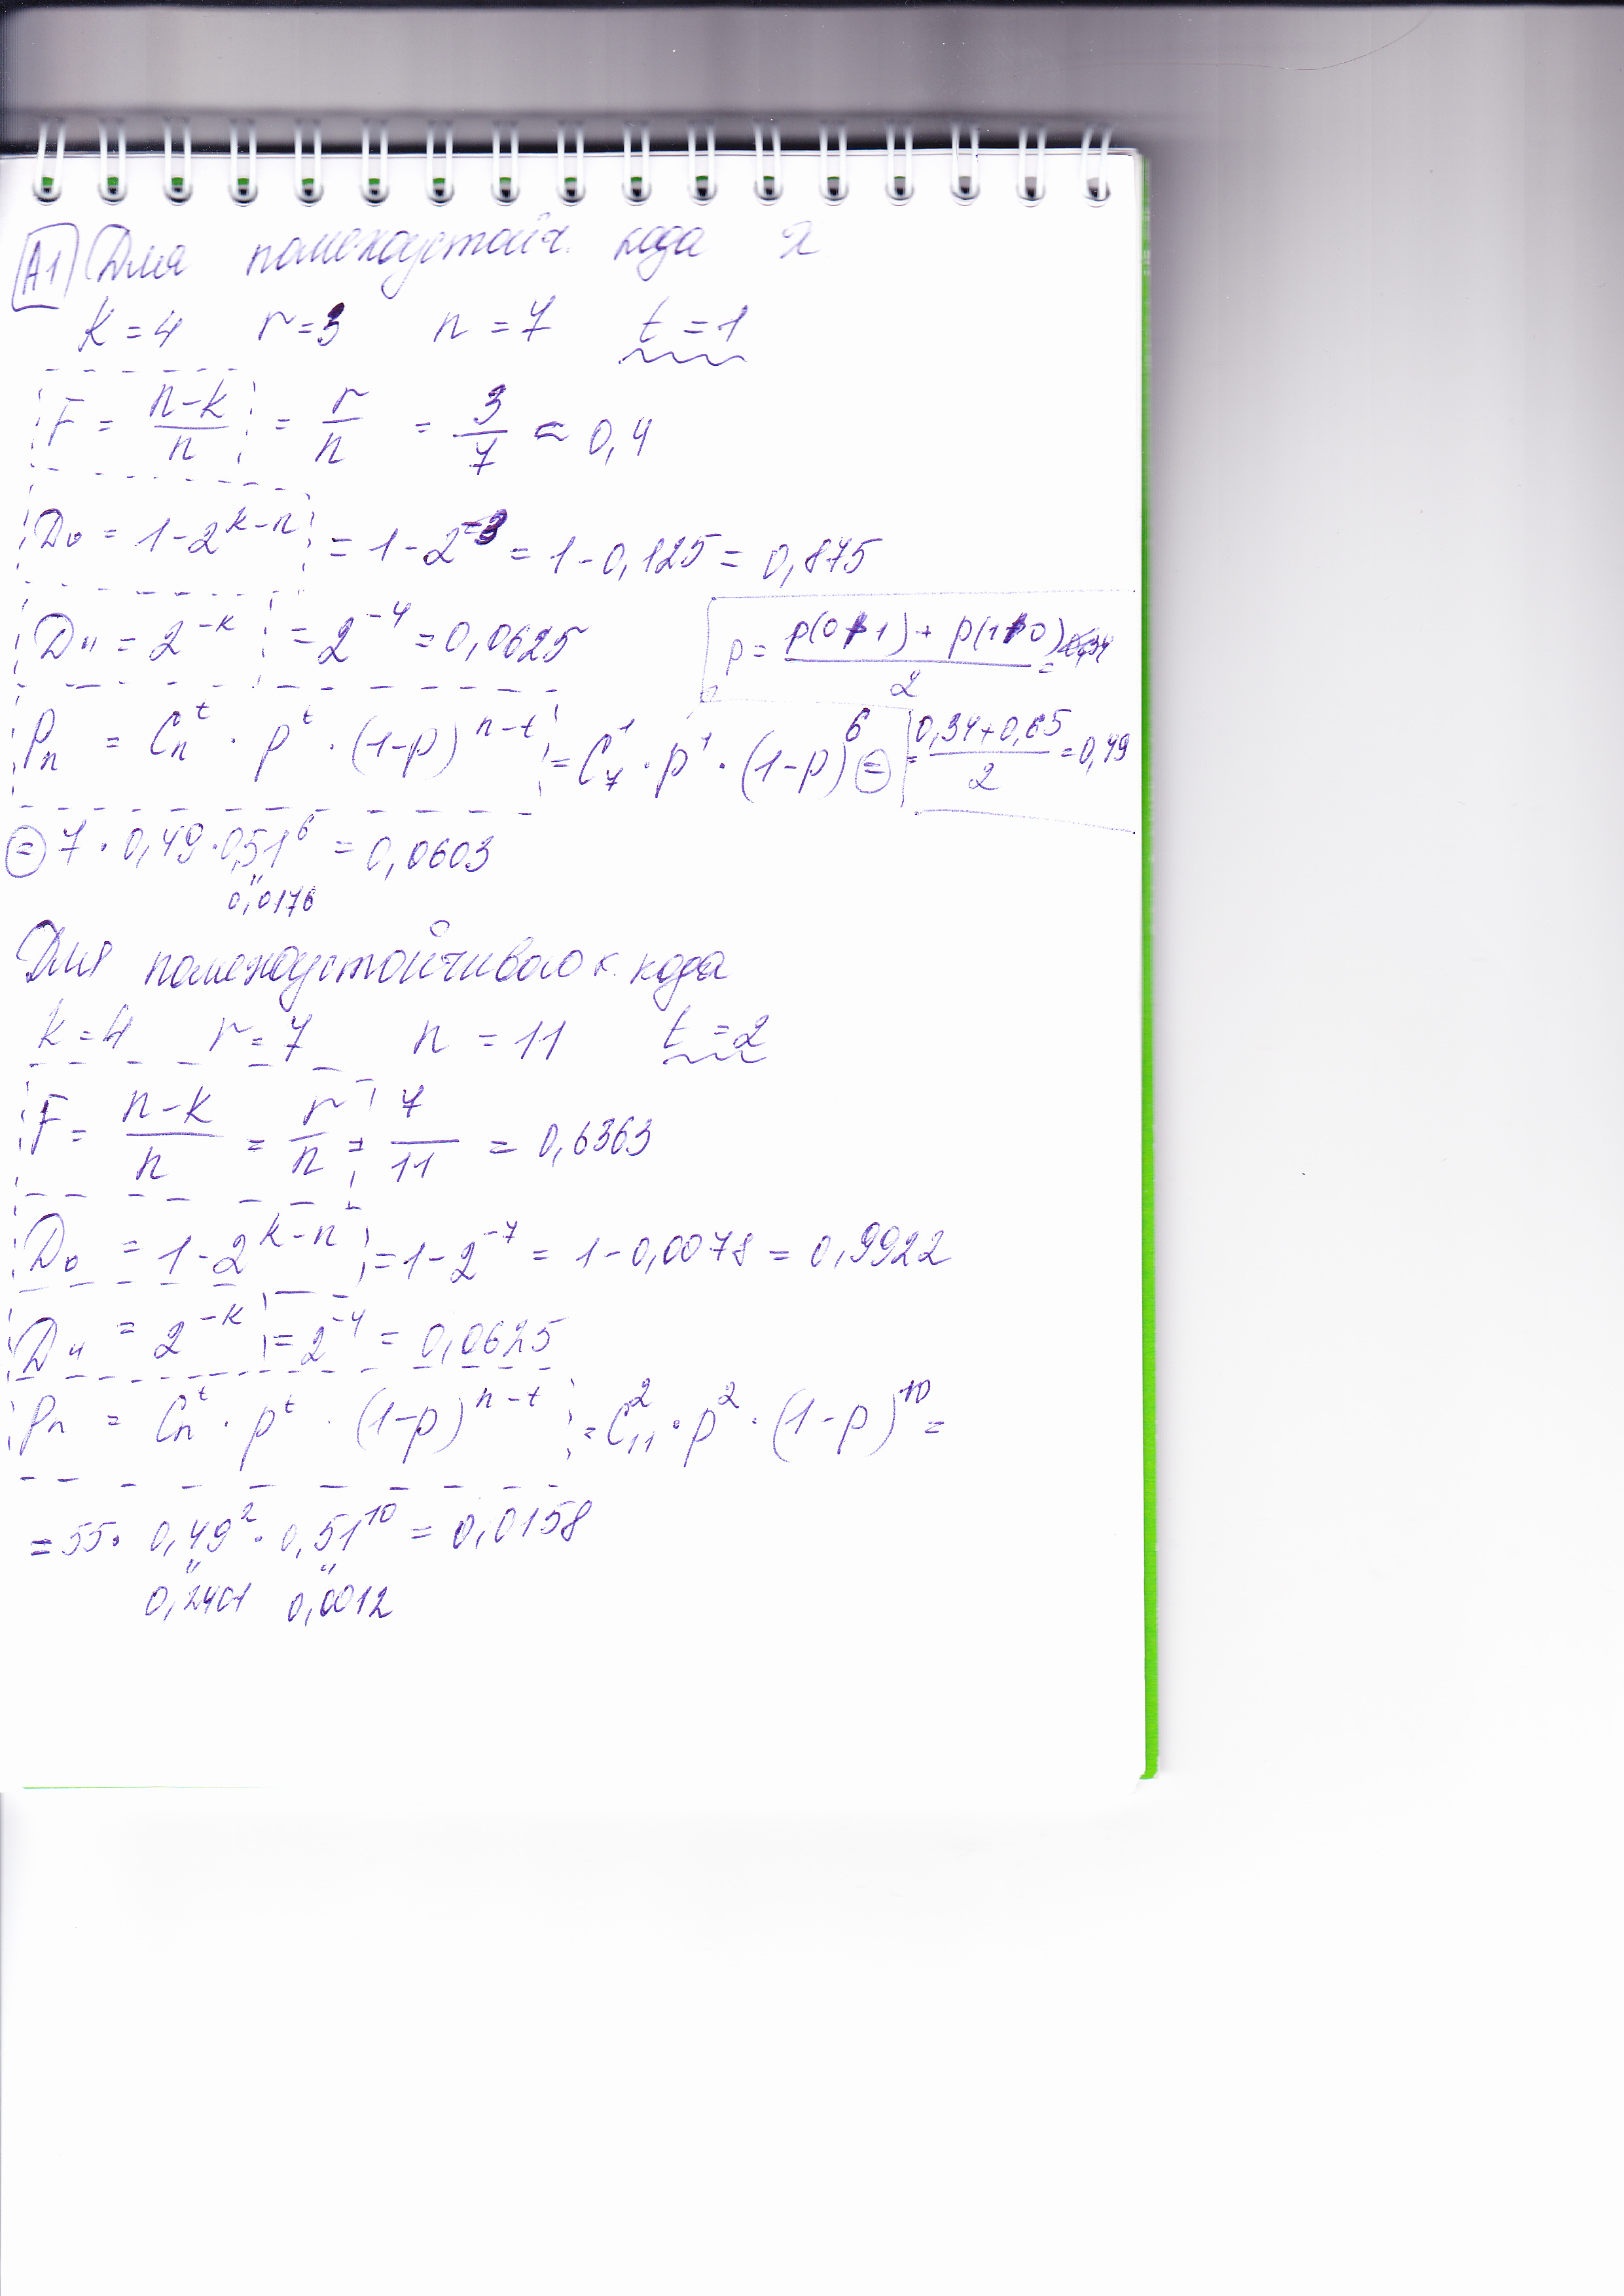 A1 Для помехоустойч. кода
k=4 r=3 n=7 t=1
F = (n-k)/n = r/n = 3/7 ≈ 0,4
Dо = 1-2^(k-n) = 1-2^(-3) = 1-0,125 = 0,875
Dн = 2^(-k) = 2^(-4) = 0,0625
p = (p(0/1) + p(1/0))/2 =
= (0,34+0,65)/2 = 0,49
Pn = Cn^t · p^t · (1-p)^(n-t) = C7^1 · p^1 · (1-p)^6 =
= 7 · 0,49 · 0,51^6 = 0,0603
0,0176
Для помехоустойчивого к. кода
k=4 r=7 n=11 t=2
F = (n-k)/n = r/n = 7/11 = 0,6363
Dо = 1-2^(k-n) = 1-2^(-7) = 1-0,0078 = 0,9922
Dн = 2^(-k) = 2^(-4) = 0,0625
Pn = Cn^t · p^t · (1-p)^(n-t) = C11^2 · p^2 · (1-p)^10 =
= 55 · 0,49^2 · 0,51^10 = 0,0158
0,2401 0,0012